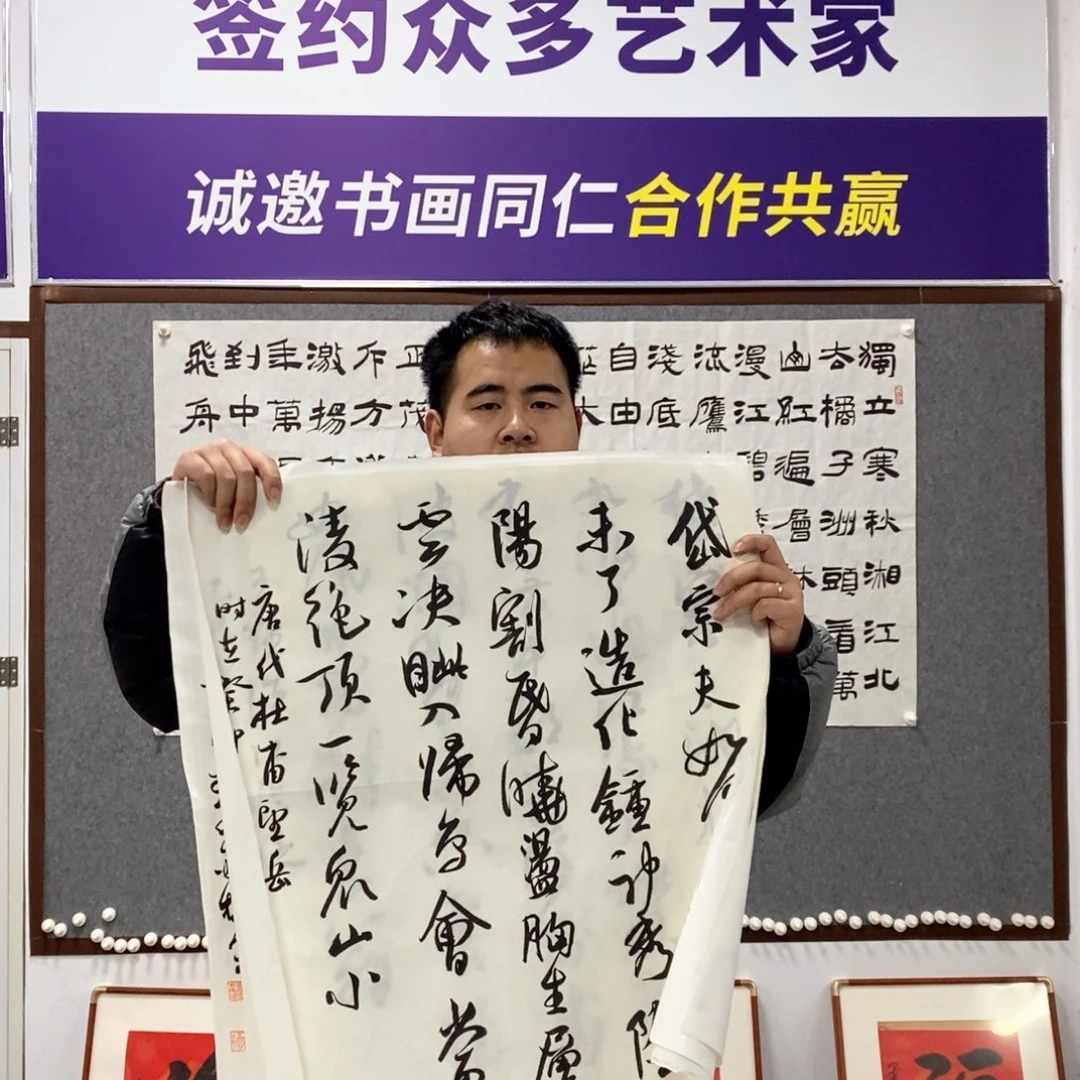 签约众多艺术家
诚邀书画同仁合作共赢
獨立寒秋湘江北
去橘子洲頭看萬
山紅遍層林
漫江碧
流鷹
淺底
自由
大
正茂
斥方
激揚
年萬
到中
飛舟
岱宗夫如
未了造化鍾神秀陰
陽割昏曉盪胸生層
雲决眦入歸鳥會當
凌絕頂一覽衆山小
唐代杜甫望岳
时在癸卯